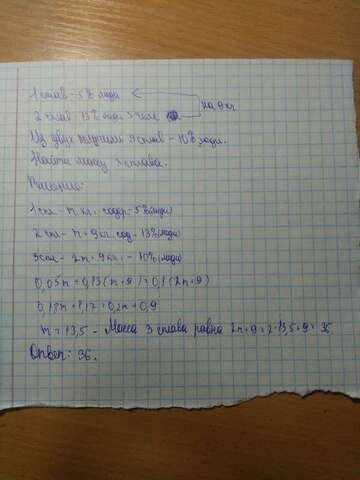 1 сплав - 5% меди
2 сплав - 13% меди > на 9 кг
Из двух получили 3 сплав - 10% меди.
Найти массу 3 сплава.
Решение:
1 спл - n кг, содер - 5% (меди)
2 спл - n + 9 кг. сод - 13% (меди)
3 спл - 2n + 9 кг, - 10% (меди)
0,05n + 0,13(n + 9) = 0,1(2n + 9)
0,18n + 1,17 = 0,2n + 0,9
n = 13,5 - Масса 3 сплава равна 2n + 9 = 2·13,5 + 9 = 36
Ответ: 36.